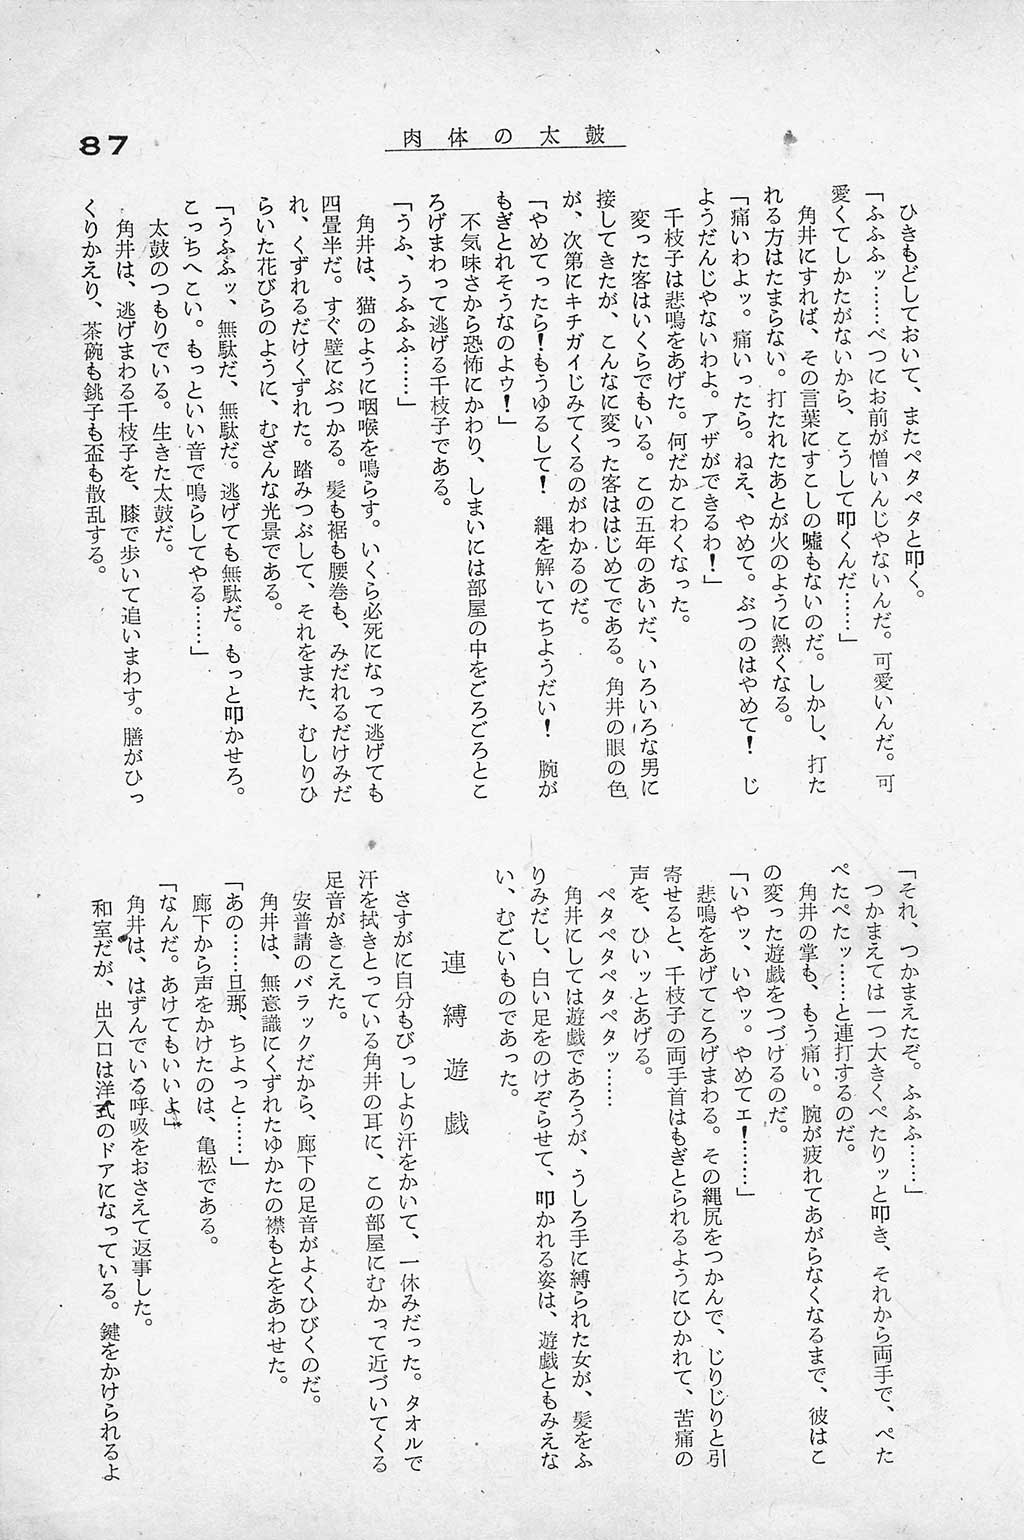 87
肉体の太鼓
ひきもどしておいて、またペタペタと叩く。
「ふふふッ……べつにお前が憎いんじゃないんだ。可愛いんだ。可
愛くてしかたがないから、こうして叩くんだ……」
角井にすれば、その言葉にすこしの嘘もないのだ。しかし、打た
れる方はたまらない。打たれたあとが火のように熱くなる。
「痛いわよッ。痛いったら。ねえ、やめて。ぶつのはやめて！　じ
ようだんじゃないわよ。アザができるわ！」
千枝子は悲鳴をあげた。何だかこわくなった。
変った客はいくらでもいる。この五年のあいだ、いろいろな男に
接してきたが、こんなに変った客ははじめてである。角井の眼の色
が、次第にキチガイじみてくるのがわかるのだ。
「やめてったら！もうゆるして！　縄を解いてちようだい！　腕が
もぎとれそうなのよゥ！」
不気味さから恐怖にかわり、しまいには部屋の中をごろごろとこ
ろげまわって逃げる千枝子である。
「うふ、うふふふ……」
角井は、猫のように咽喉を鳴らす。いくら必死になって逃げても
四畳半だ。すぐ壁にぶつかる。髪も裾も腰巻も、みだれるだけみだ
れ、くずれるだけくずれた。踏みつぶして、それをまた、むしりひ
らいた花びらのように、むざんな光景である。
「うふふッ、無駄だ、無駄だ。逃げても無駄だ。もっと叩かせろ。
こっちへこい。もっといい音で鳴らしてやる……」
太鼓のつもりでいる。生きた太鼓だ。
角井は、逃げまわる千枝子を、膝で歩いて追いまわす。膳がひっ
くりかえり、茶碗も銚子も盃も散乱する。
「それ、つかまえたぞ。ふふふ……」
つかまえては一つ大きくぺたりッと叩き、それから両手で、ぺた
ぺたぺたッ……と連打するのだ。
角井の掌も、もう痛い。腕が疲れてあがらなくなるまで、彼はこ
の変った遊戯をつづけるのだ。
「いやッ、いやッ。やめてェ！……」
悲鳴をあげてころげまわる。その縄尻をつかんで、じりじりと引
寄せると、千枝子の両手首はもぎとられるようにひかれて、苦痛の
声を、ひいッとあげる。
ペタペタペタペタッ……
角井にしては遊戯であろうが、うしろ手に縛られた女が、髪をふ
りみだし、白い足をのけぞらせて、叩かれる姿は、遊戯ともみえな
い、むごいものであった。
連縛遊戯
さすがに自分もびっしより汗をかいて、一休みだった。タオルで
汗を拭きとっている角井の耳に、この部屋にむかって近づいてくる
足音がきこえた。
安普請のバラックだから、廊下の足音がよくひびくのだ。
角井は、無意識にくずれたゆかたの襟もとをあわせた。
「あの……旦那、ちよっと……」
廊下から声をかけたのは、亀松である。
「なんだ。あけてもいいよ」
角井は、はずんでいる呼吸をおさえて返事した。
和室だが、出入口は洋式のドアになっている。鍵をかけられるよ